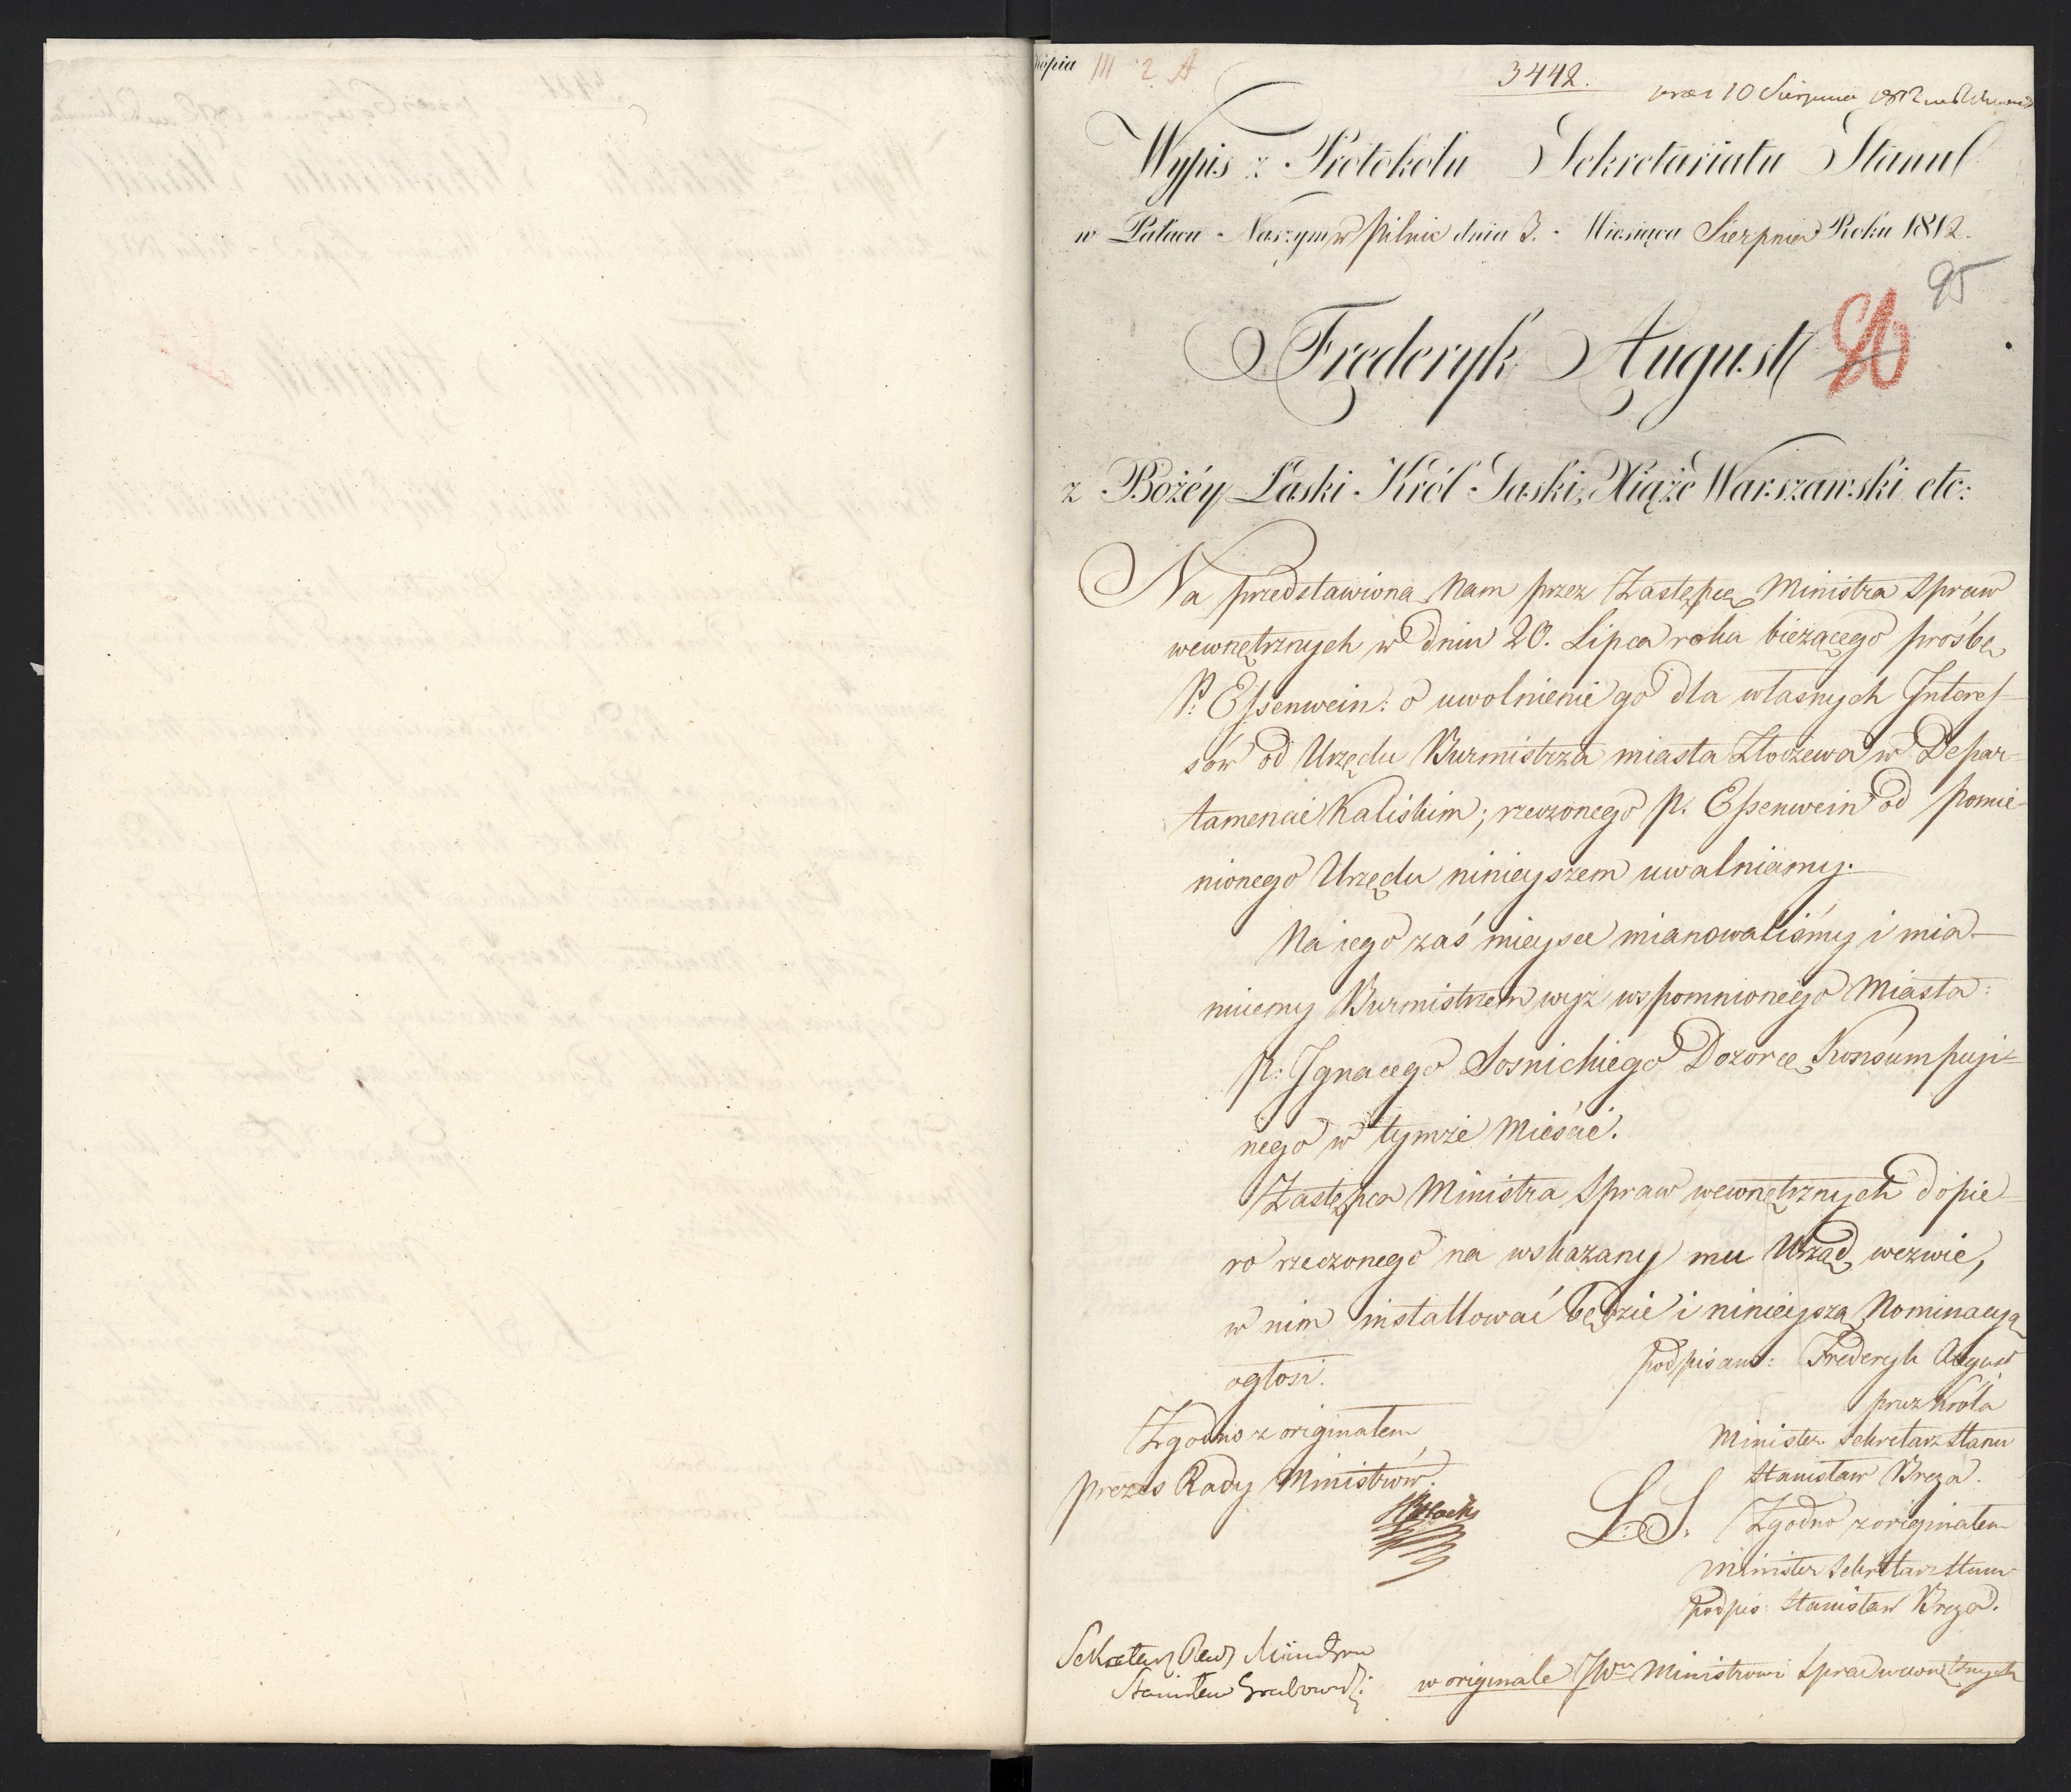 kopia III 2 A
3442.
10 Sierpnia 1812
Wypis z Protokołu Sekretariatu Stanu
w Pałacu Naszym w Pilnic dnia 3. Miesiąca Sierpnia Roku 1812.
95
Frederyk August
z Bożéy Łaski Król Saski, Xiąże Warszawski etc:
Na przedstawioną Nam przez Zastępcę Ministra Spraw
wewnętrznych w dniu 20. Lipca roku bieżącego prośbę
P: Essenwein: o uwolnienie go dla własnych Interes-
sów od Urzędu Burmistrza miasta Złoczewa w Depar-
tamencie Kaliskim; rzeczonego P. Essenwein od pomie-
nionego Urzędu ninieyszem uwalniamy.
Na iego zaś mieysce mianowaliśmy i mia-
nuiemy Burmistrzem wyż wspomnionego Miasta:
P: Ignacego Sosnickiego Dozorcę Konsumpcyi-
nego w tymże Mieście.
Zastępca Ministra Spraw wewnętrznych dopie-
ro rzeczonego na wskazany mu Urząd wezwie,
w nim installować będzie i ninieyszą Nominacyą
ogłosi.
podpisano: Frederyk August
przez Króla
Minister Sekretarz Stanu
Stanisław Breza.
Zgodno z originałem
Prezes Rady Ministrów.
L. S. Zgodno z originałem
Minister Sekretarz Stanu
podpis: Stanisław Breza.
Sekretarz Rady Ministrów
Stanisław Grabowski
w originale JWu Ministrowi Spraw wewnętrznych